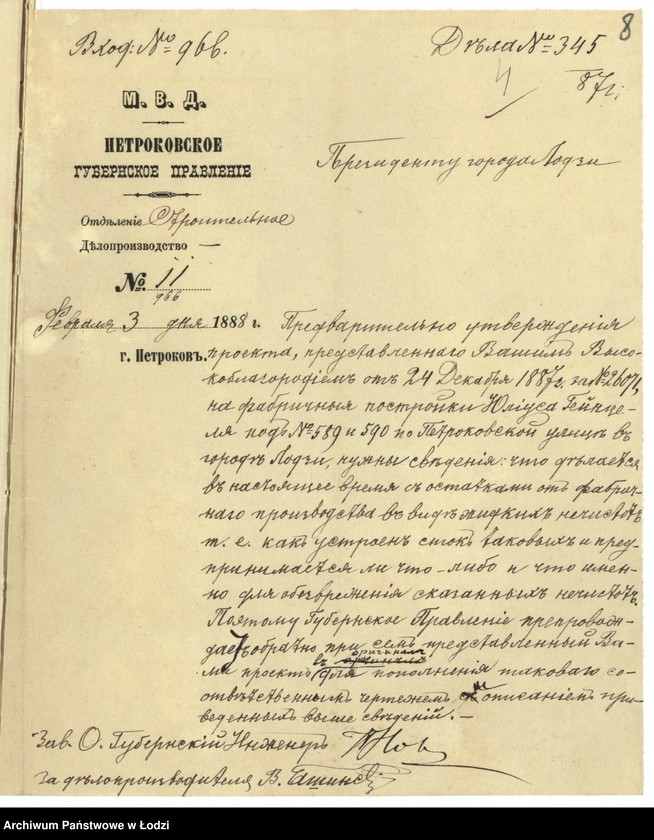 8
Вход: № 966.
Дѣла № 345
87 г.
М. В. Д.
ПЕТРОКОВСКОЕ
ГУБЕРНСКОЕ ПРАВЛЕНІЕ
Президенту города Лодзи
Отдѣленіе Строительное
Дѣлопроизводство —
№ 11
966
Февраля 3 дня 1888 г.
г. Петроковъ.
Предварительно утвержденія
проекта, представленнаго Вашимъ Высо-
коблагородіемъ отъ 24 Декабря 1887 г. за № 26071,
на фабричныя постройки Юліуса Гейнце-
ля подъ № 589 и 590 по Петроковской улицѣ въ
городѣ Лодзи, нужны свѣдѣнія: что дѣлается
въ настоящее время съ остатками отъ фабрич-
наго производства въ видѣ жидкихъ нечистотъ
т. е. какъ устроен стокъ таковыхъ и пред-
принимается ли что-либо и что имен-
но для обезвреженія сказанныхъ нечистотъ.
Поэтому Губернское Правленіе препровож-
даетъ обратно при семъ представленный Ва-
ми проектъ въ оригиналѣ для пополненія таковаго со-
отвѣтственнымъ чертежемъ и описаніемъ при-
веденныхъ выше свѣдѣній. —
Зав. О. Губернскій Инженеръ
За дѣлопроизводителя В.
Archiwum Państwowe w Łodzi